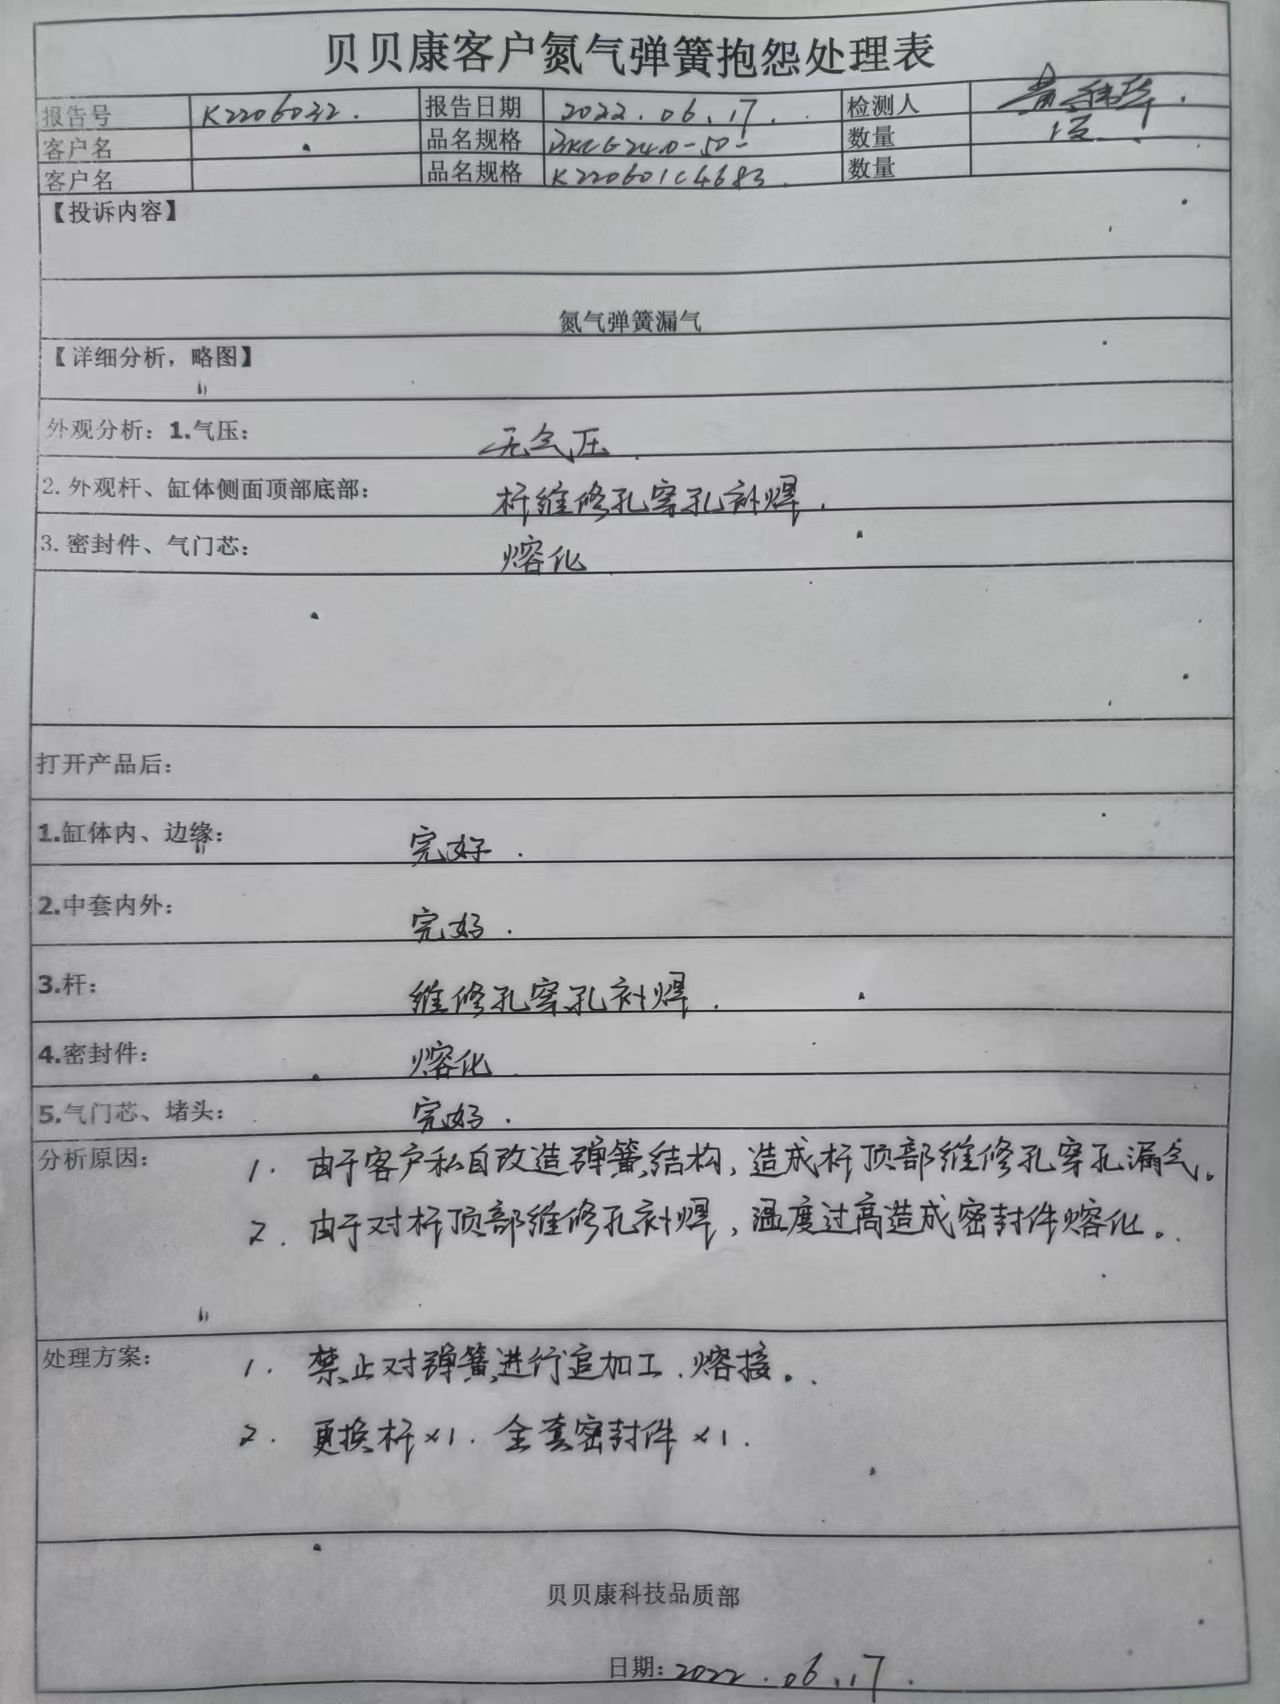 贝贝康客户氮气弹簧抱怨处理表
报告号 K2206032. 报告日期 2022.06.17. 检测人
客户名 品名规格 数量
客户名 品名规格 K220601C4683. 数量
【投诉内容】
氮气弹簧漏气
【详细分析，略图】
外观分析：1.气压： 无气压.
2.外观杆、缸体侧面顶部底部： 杆维修孔穿孔补焊.
3.密封件、气门芯： 熔化
打开产品后：
1.缸体内、边缘： 完好.
2.中套内外： 完好.
3.杆： 维修孔穿孔补焊.
4.密封件： 熔化
5.气门芯、堵头： 完好.
分析原因： 1. 由于客户私自改造弹簧结构，造成杆顶部维修孔穿孔漏气。
2. 由于对杆顶部维修孔补焊，温度过高造成密封件熔化。
处理方案： 1. 禁止对弹簧进行追加工.熔接。
2. 更换杆×1. 全套密封件×1.
贝贝康科技品质部
日期：2022.06.17.